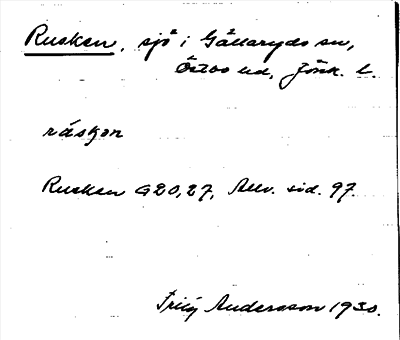 Rusken, sjö i Gällaryds sn,
Östbo hd, Jönk. l.
råskɲn
Rusken G20,27, Allv. sid. 97.
Frity Andersson 1930.